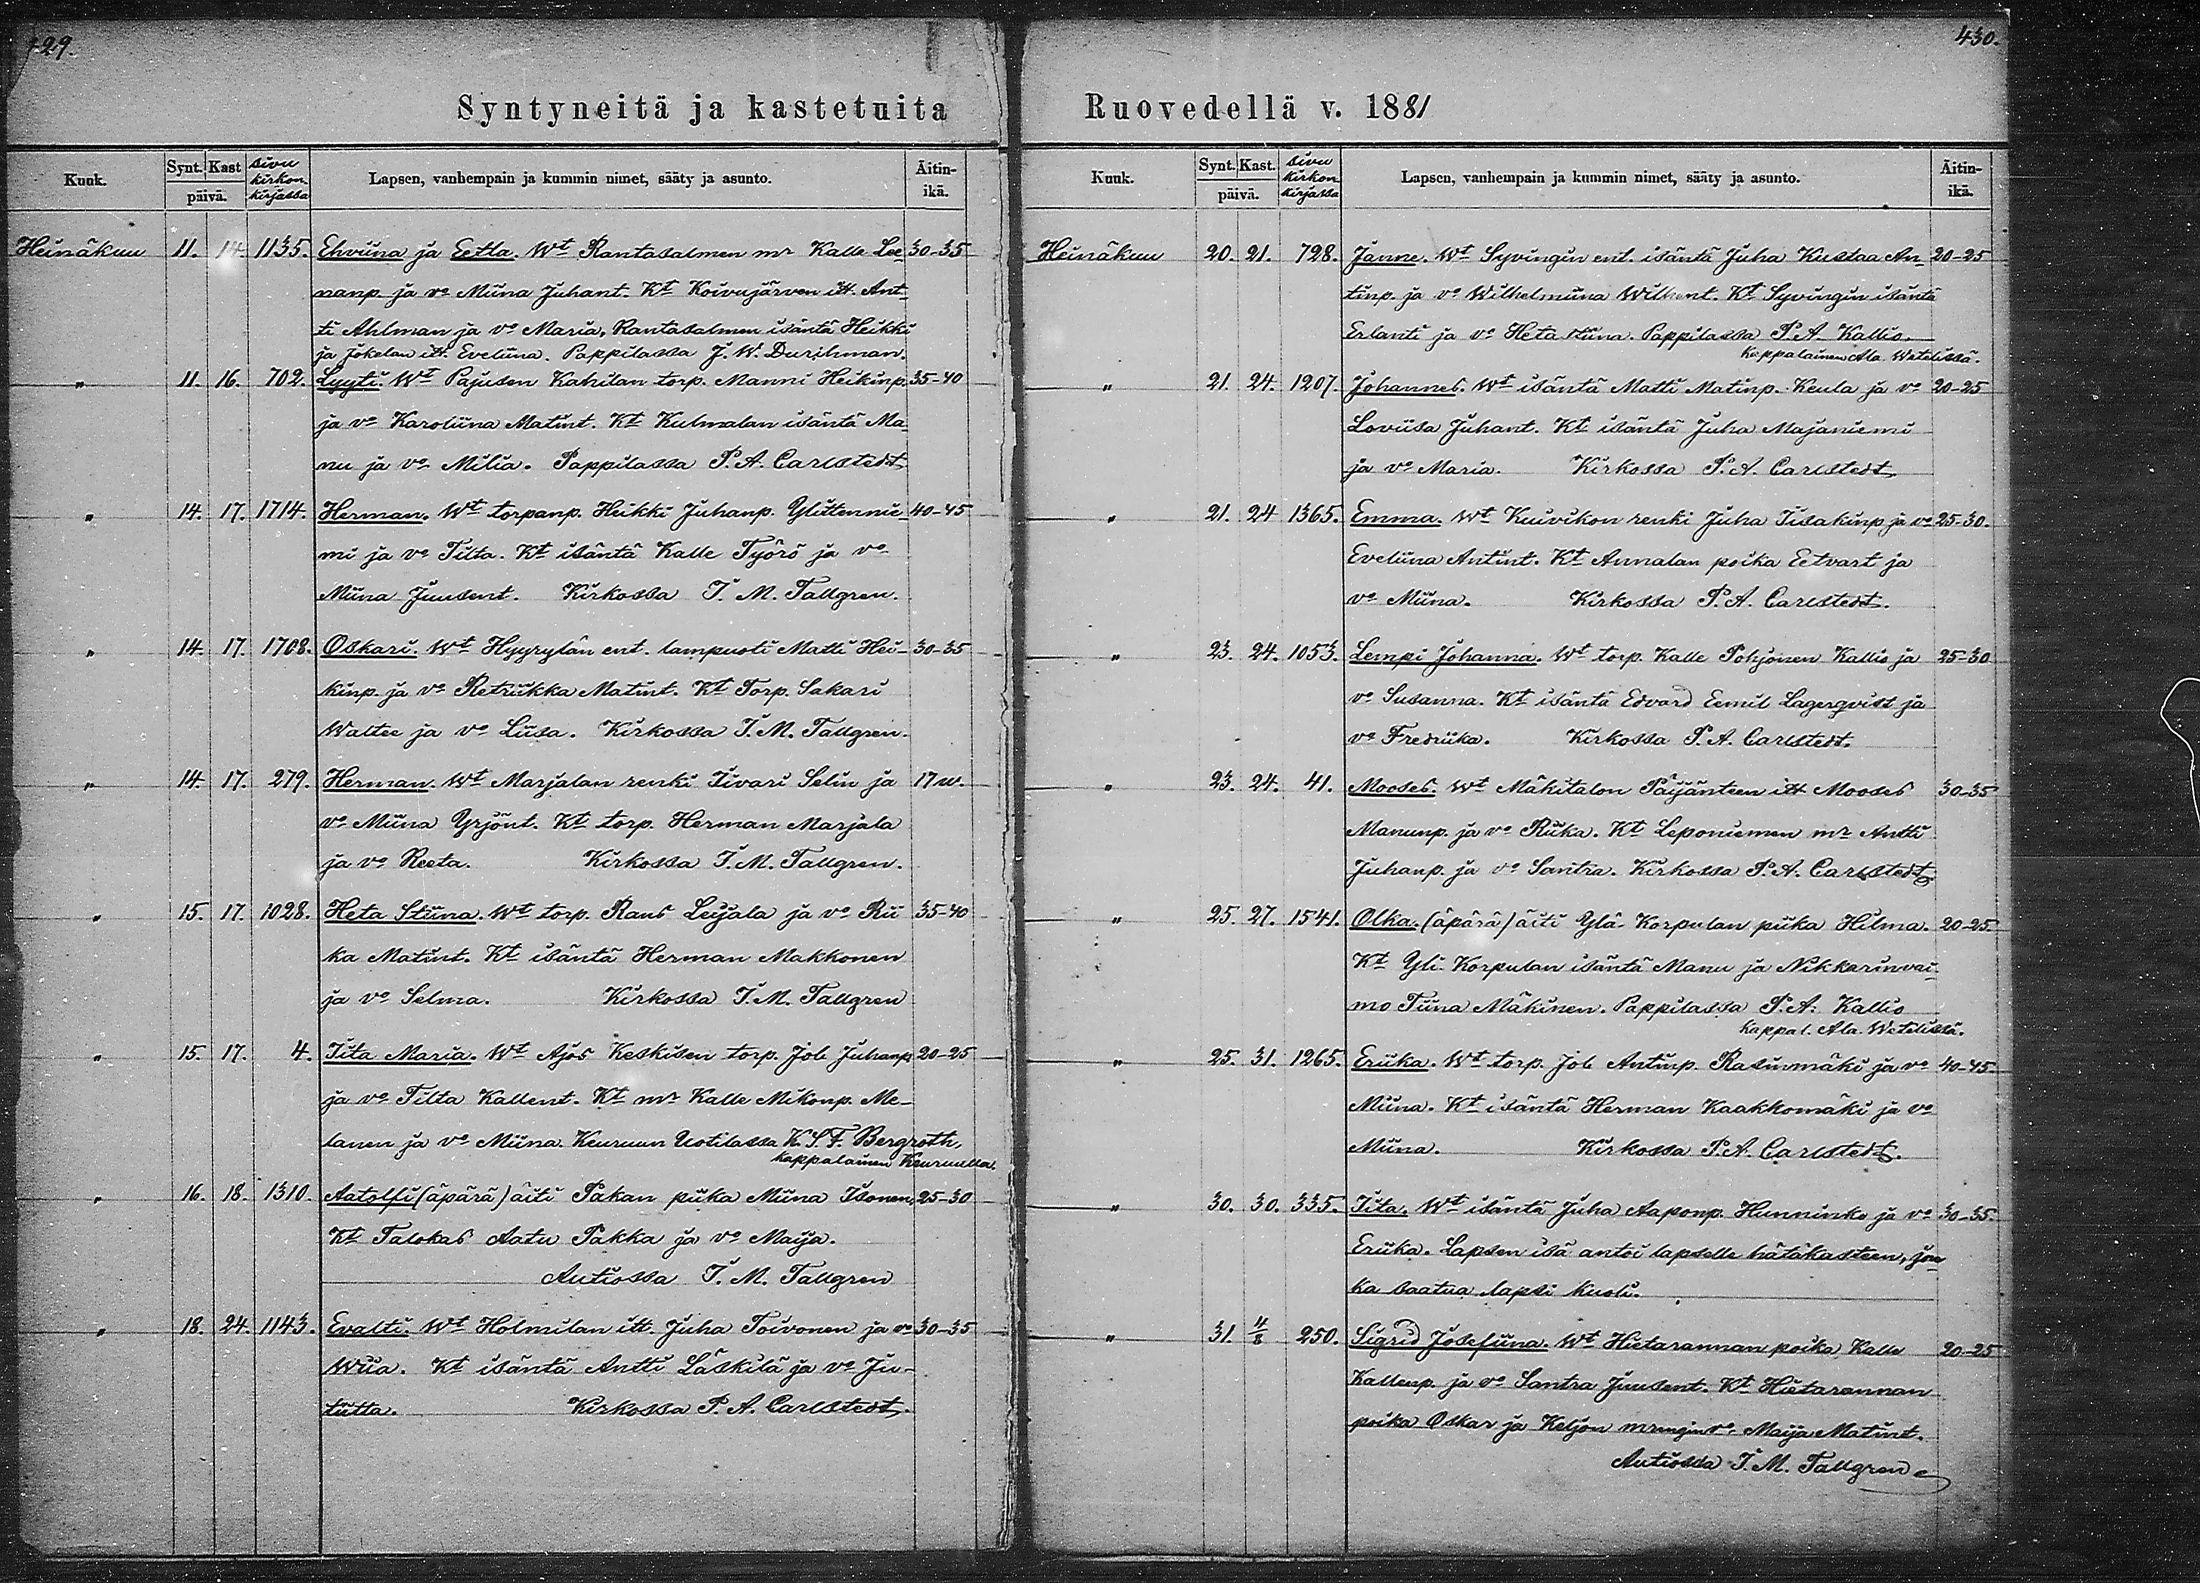 429.
Syntyneitä ja kastetuita
Kuuk.
Synt. Kast
päivä.
sivu kirkon kirjassa
Lapsen, vanhempain ja kummin nimet, sääty ja asunto.
Äitin-ikä.
Heinäkuu 11. 14. 1135. Elviina ja Eetla. Wt Rantasalmen mr Kalle Lee- 30-35
nanp. ja vo Miina Juhant. Kt Koivujärven itt. Ant-
ti Ahlman ja vo Maria, Rantasalmen isäntä Heikki
ja Jokelan itt. Eveliina. Pappilassa J. W. Durchman.
" 11. 16. 702. Lyyti. Wt Pajusen Kahilan torp. Manni Heikinp. 35-40
ja vo Karoliina Matint. Kt Kulmalan isäntä Ma-
nu ja vo Milia. Pappilassa P. A. Carlstedt
" 14. 17. 1714. Herman. Wt torpanp. Heikki Juhanp. Ylittennie- 40-45
mi ja vo Tilta. Kt isäntä Kalle Työrö ja vo
Miina Juusent. Kirkossa I. M. Tallgren.
" 14. 17. 1708. Oskari. Wt Hyyrylän ent. lampuoti Matti Hei- 30-35
kinp. ja vo Retriikka Matint. Kt Torp. Sakari
Waltee ja vo Liisa. Kirkossa I. M. Tallgren.
" 14. 17. 279. Herman. Wt Marjalan renki Iivari Selin ja 17 w.
vo Miina Yrjönt. Kt torp. Herman Marjala
ja vo Reeta. Kirkossa I. M. Tallgren.
" 15. 17. 1028. Heta Stiina. Wt torp. Rans Leijala ja vo Rii 35-40
ka Matint. Kt isäntä Herman Makkonen
ja vo Selma. Kirkossa I. M. Tallgren
" 15. 17. 4. Iita Maria. Wt Ajos Keskisen torp. Job Juhanp. 20-25
ja vo Tilta Kallent. Kt mr Kalle Mikonp. Me-
lanen ja vo Miina. Keuruun Uotilassa K. S. F. Bergroth,
kappalainen Keuruulla.
" 16. 18. 1310. Aatolfi (äpärä) äiti Pakan piika Miina Isonen. 25-30
Kt Talokas Aatu Pakka ja vo Maija.
Autiossa I. M. Tallgren
" 18. 24. 1143. Evalti. Wt Holmilan itt. Juha Toivonen ja vo 30-35
Wiia. Kt isäntä Antti Läskilä ja vo Ju-
tiitta. Kirkossa P. A. Carlstedt.
430.
Ruovedellä v. 1881
Kuuk.
Synt. Kast.
päivä.
sivu kirkon kirjassa
Lapsen, vanhempain ja kummin nimet, sääty ja asunto.
Äitin-ikä.
Heinäkuu 20. 21. 728. Janne. Wt Syvingin ent. isäntä Juha Kustaa An- 20-25
tinp. ja vo Wilhelmiina Wilhent. Kt Syvingin isäntä
Erlanti ja vo Heta stiina. Pappilassa P. A. Kallio.
kappalainen Ala Wetelissä.
" 21. 24. 1207. Johannes. Wt isäntä Matti Matinp. Keula ja vo 20-25
Loviisa Juhant. Kt isäntä Juha Majaniemi
ja vo Maria. Kirkossa P. A. Carlstedt
" 21. 24 1365. Emma. Wt Kuivikon renki Juha Iisakinp. ja vo 25-30.
Eveliina Antint. Kt Annalan poika Eetvart ja
vo Miina. Kirkossa P. A. Carlstedt.
" 23. 24. 1053. Lempi Johanna. Wt torp. Kalle Pohjonen Kallio ja 25-30
vo Susanna. Kt isäntä Edvard Eemil Lagerqvist ja
vo Fredriika. Kirkossa P. A. Carlstedt.
" 23. 24. 41. Mooses. Wt Mäkitalon Päijänteen itt Mooses 30-35
Manunp. ja vo Riika. Kt Leponiemen mr Antti
Juhanp. ja vo Santra. Kirkossa P. A. Carlstedt
" 25. 27. 1541. Olka. (äpärä) äiti Ylä-Korpulan piika Hilma. 20-25
Kt Yli-Korpulan isäntä Manu ja Nikkarinvai-
mo Tiina Mäkinen. Pappilassa P. A. Kallio
kappal. Ala Wetelissä.
" 25. 31. 1265. Eriika. Wt torp. Job Antinp. Rasinmäki ja vo 40-45.
Miina. Kt isäntä Herman Kaakkomäki ja vo
Miina. Kirkossa P. A. Carlstedt.
" 30. 30. 335. Iita. Wt isäntä Juha Aaponp. Hunninko ja vo 30-35.
Eriika. Lapsen isä antoi lapselle hätäkasteen, jon-
ka saatua lapsi kuoli.
" 31. 4/8 250. Sigrid Josefiina. Wt Hietarannan poika Kalle 20-25
Kallenp. ja vo Santra Juusent. Kt Hietarannan
poika Oskar ja Keljon mrengin vo Maija Matint.
Autiossa I. M. Tallgren